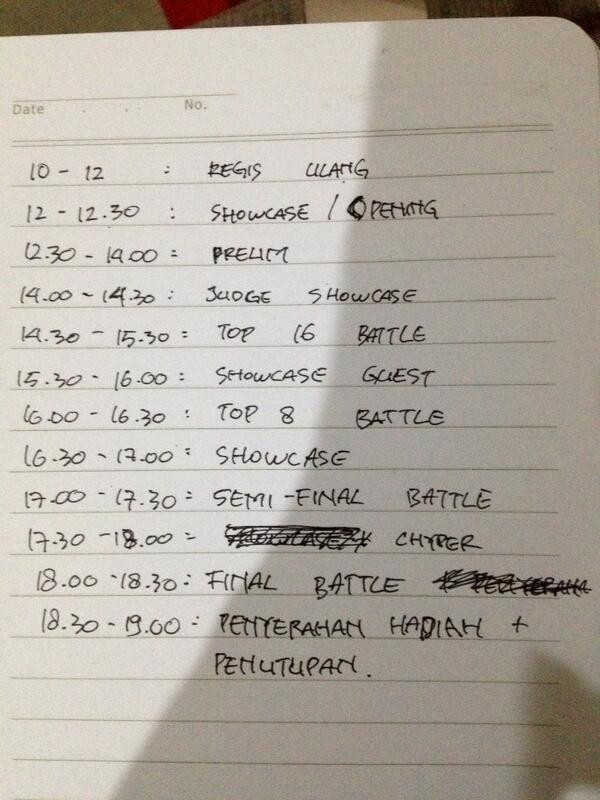 Date . . . No.
10 - 12 : REGIS ULANG
12 - 12.30 : SHOWCASE / OPENING
12.30 - 14.00 : PRELIM
14.00 - 14.30 : JUDGE SHOWCASE
14.30 - 15.30 : TOP 16 BATTLE
15.30 - 16.00 : SHOWCASE GUEST
16.00 - 16.30 : TOP 8 BATTLE
16.30 - 17.00 : SHOWCASE
17.00 - 17.30 : SEMI-FINAL BATTLE
17.30 - 18.00 : CHYPER
18.00 - 18.30 : FINAL BATTLE
18.30 - 19.00 : PENYERAHAN HADIAH +
PENUTUPAN.